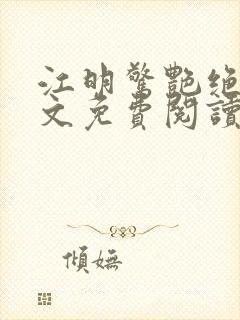 江明驚艷絕
文免費閱讀
傾嫵